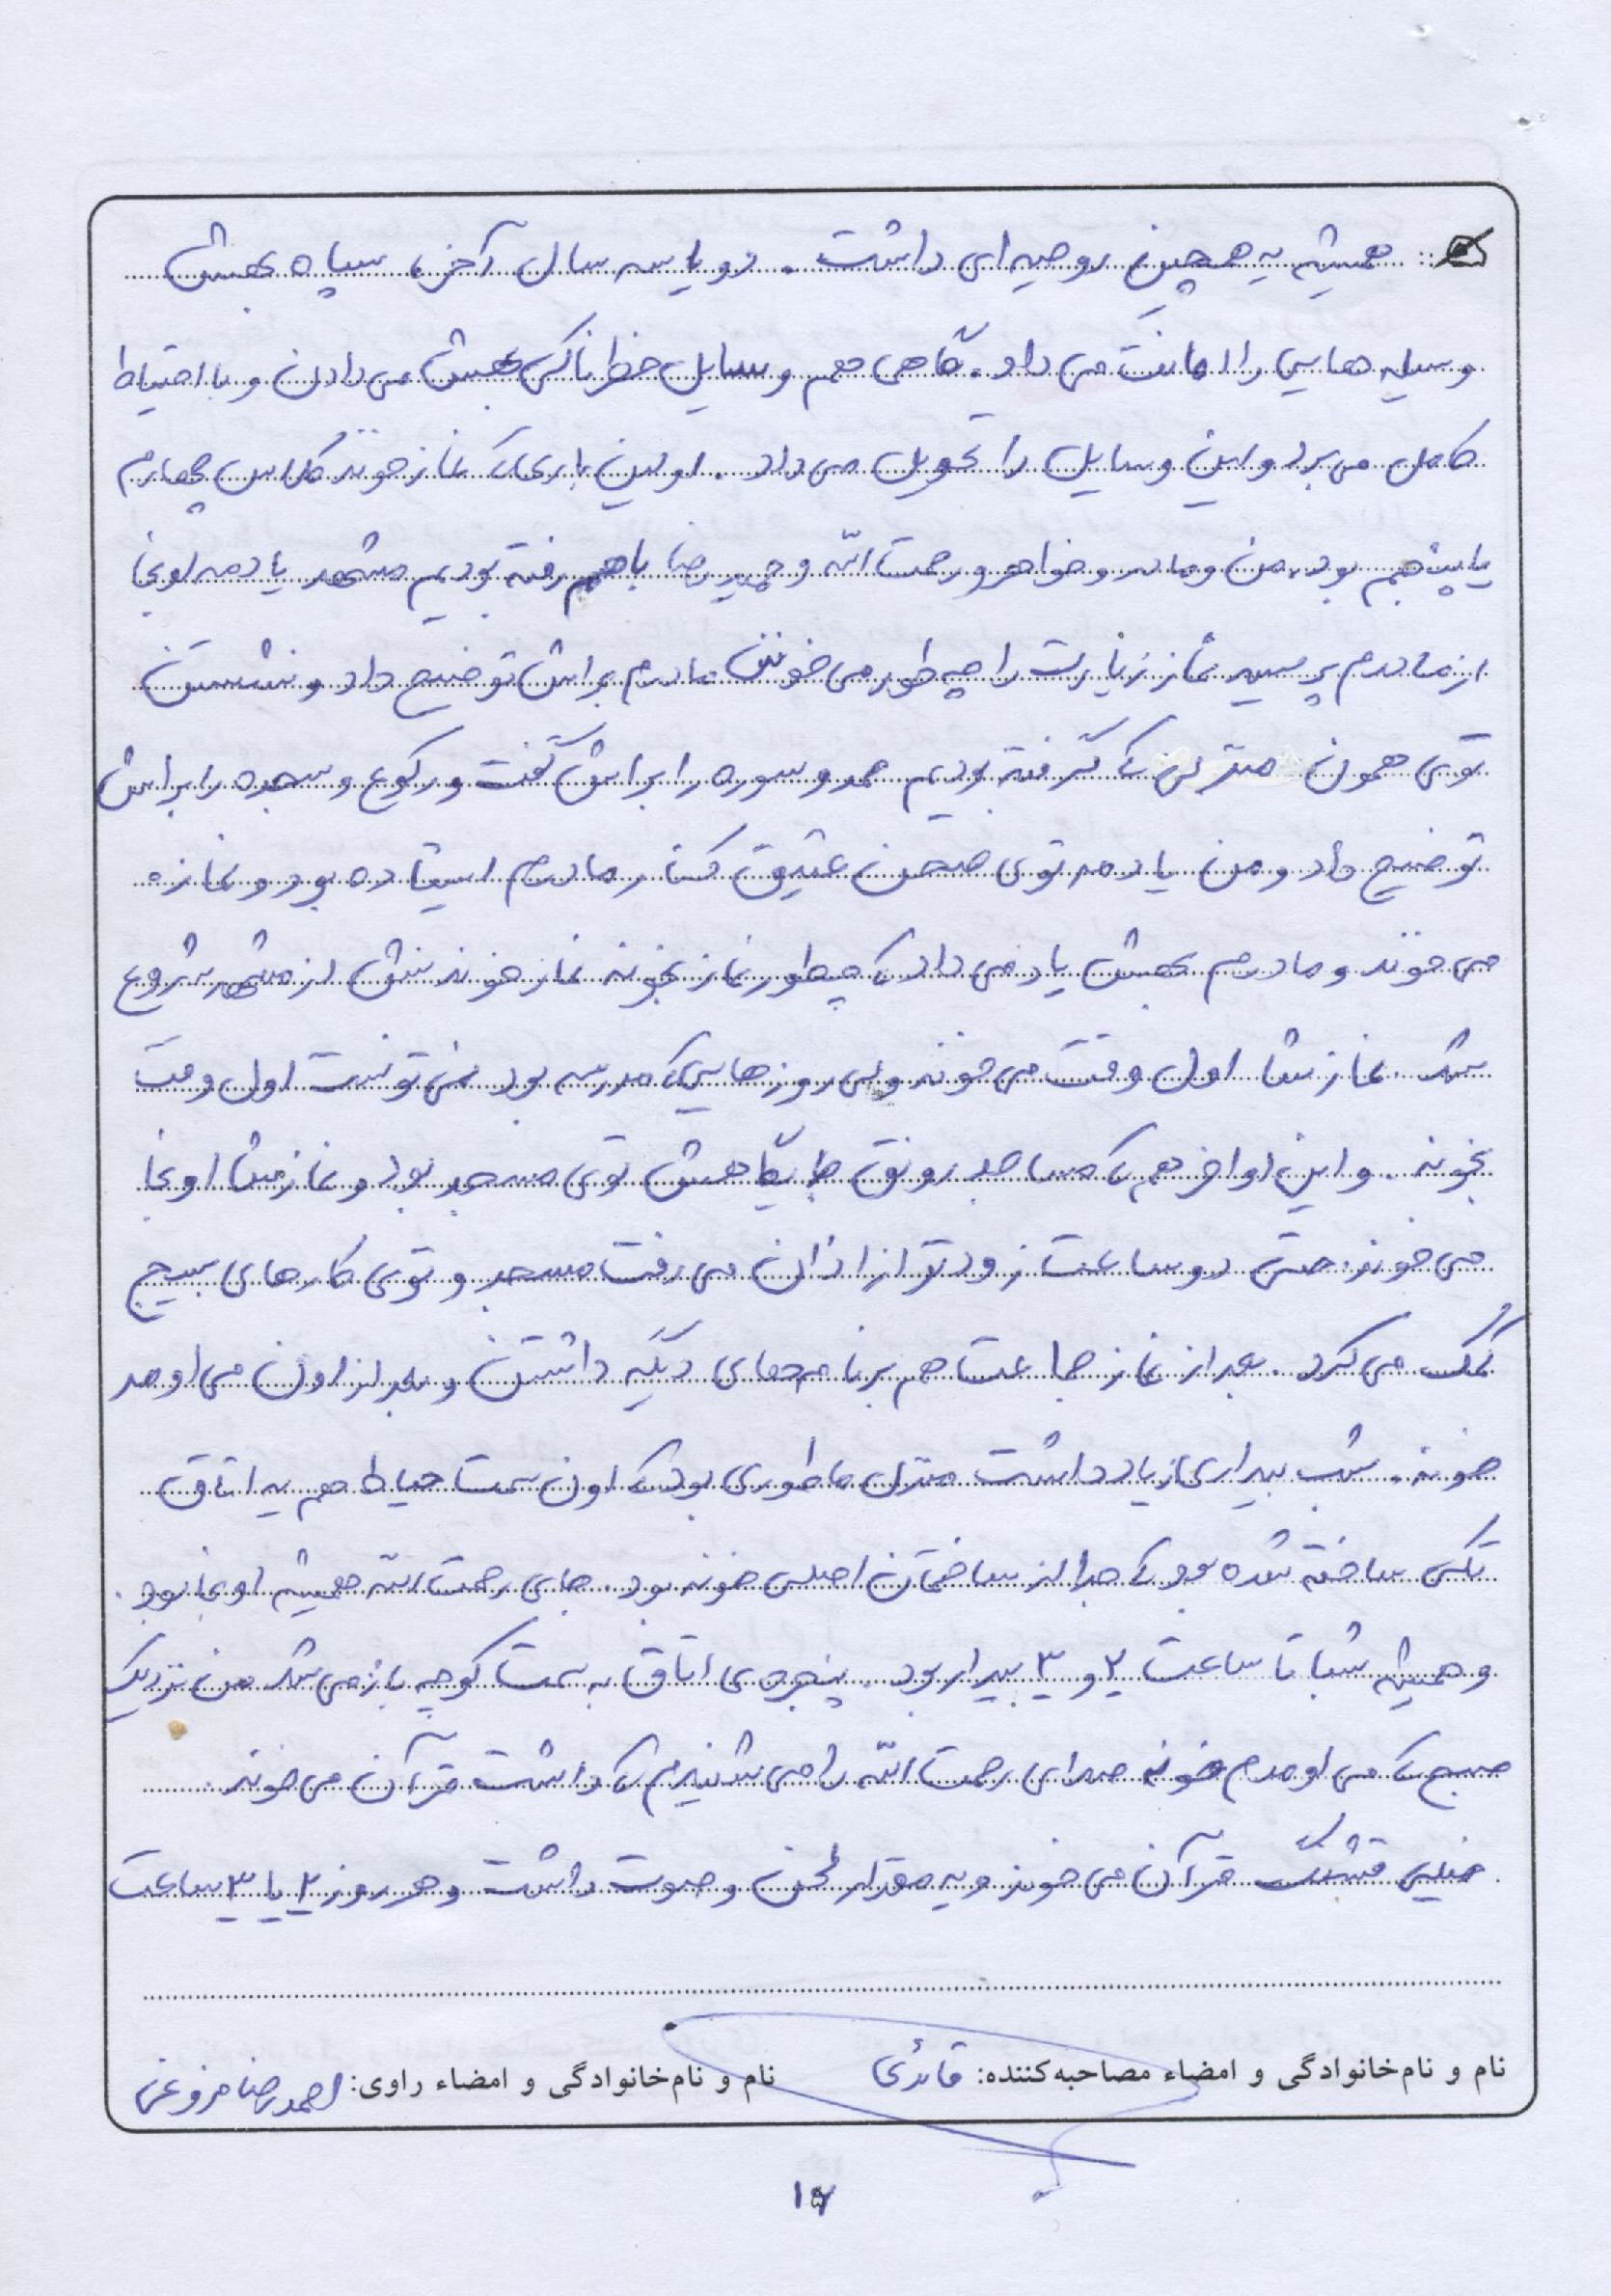 همیشه یه همچین روحیه‌ای داشت. دو یا سه سال آخر، سپاه بهش
وسیله‌هایی را امانت می‌داد. گاهی هم وسایل خطرناکی بهش می‌دادن و با احتیاط
کامل می‌برد و این وسایل را تحویل می‌داد. اولین باری که نماز خوند کلاس چهارم
یا پنجم بود، من و مادر و خواهر و رحمت‌الله و حمیدرضا باهم رفته بودیم مشهد یادمه اونجا
از مادرم پرسید نماز زیارت را چه طور می‌خونن مادرم براش توضیح داد و نشستن
توی همون منزلی که گرفته بودیم حمد و سوره را براش گفت و رکوع و سجده را براش
توضیح داد و من یادمه توی صحن عتیق کنار مادرم ایستاده بود و نماز
می‌خوند و مادرم بهش یاد می‌داد که چطور نماز بخونه نماز خوندنش از مشهد شروع
شد. نمازشا اول وقت می‌خوند ولی روزهایی که مدرسه بود نمی‌تونست اول وقت
بخونه. و این اواخر هم که مساجد رونق پایگاهش توی مسجد بود و نمازشا اونجا
می‌خوند. حتی دو ساعت زودتر از اذان می‌رفت مسجد و توی کارهای بسیج
کمک می‌کرد. بعد از نماز جماعت هم برنامه‌های دیگه داشتن و بعد از اون می‌اومد
خونه. شب بیداری زیاد داشت منزل ما طوری بود که اون سمت حیاط هم یه اتاق
تکی ساخته شده بود که جدا از ساختمان اصلی خونه بود. جای رحمت‌الله همیشه اونجا بود.
و همیشه شبا تا ساعت ۲ و ۳ بیدار بود. پنجره‌ی اتاق به سمت کوچه باز می‌شد من نزدیک
صبح که می‌اومدم خونه صدای رحمت‌الله را می‌شنیدم که داشت قرآن می‌خوند.
خیلی قشنگ قرآن می‌خوند و یه مقدار لحن و صوت داشت و هر روز ۲ یا ۳ ساعت
نام و نام‌خانوادگی و امضاء مصاحبه‌کننده: قائدی نام و نام‌خانوادگی و امضاء راوی: احمدرضا مزروعی